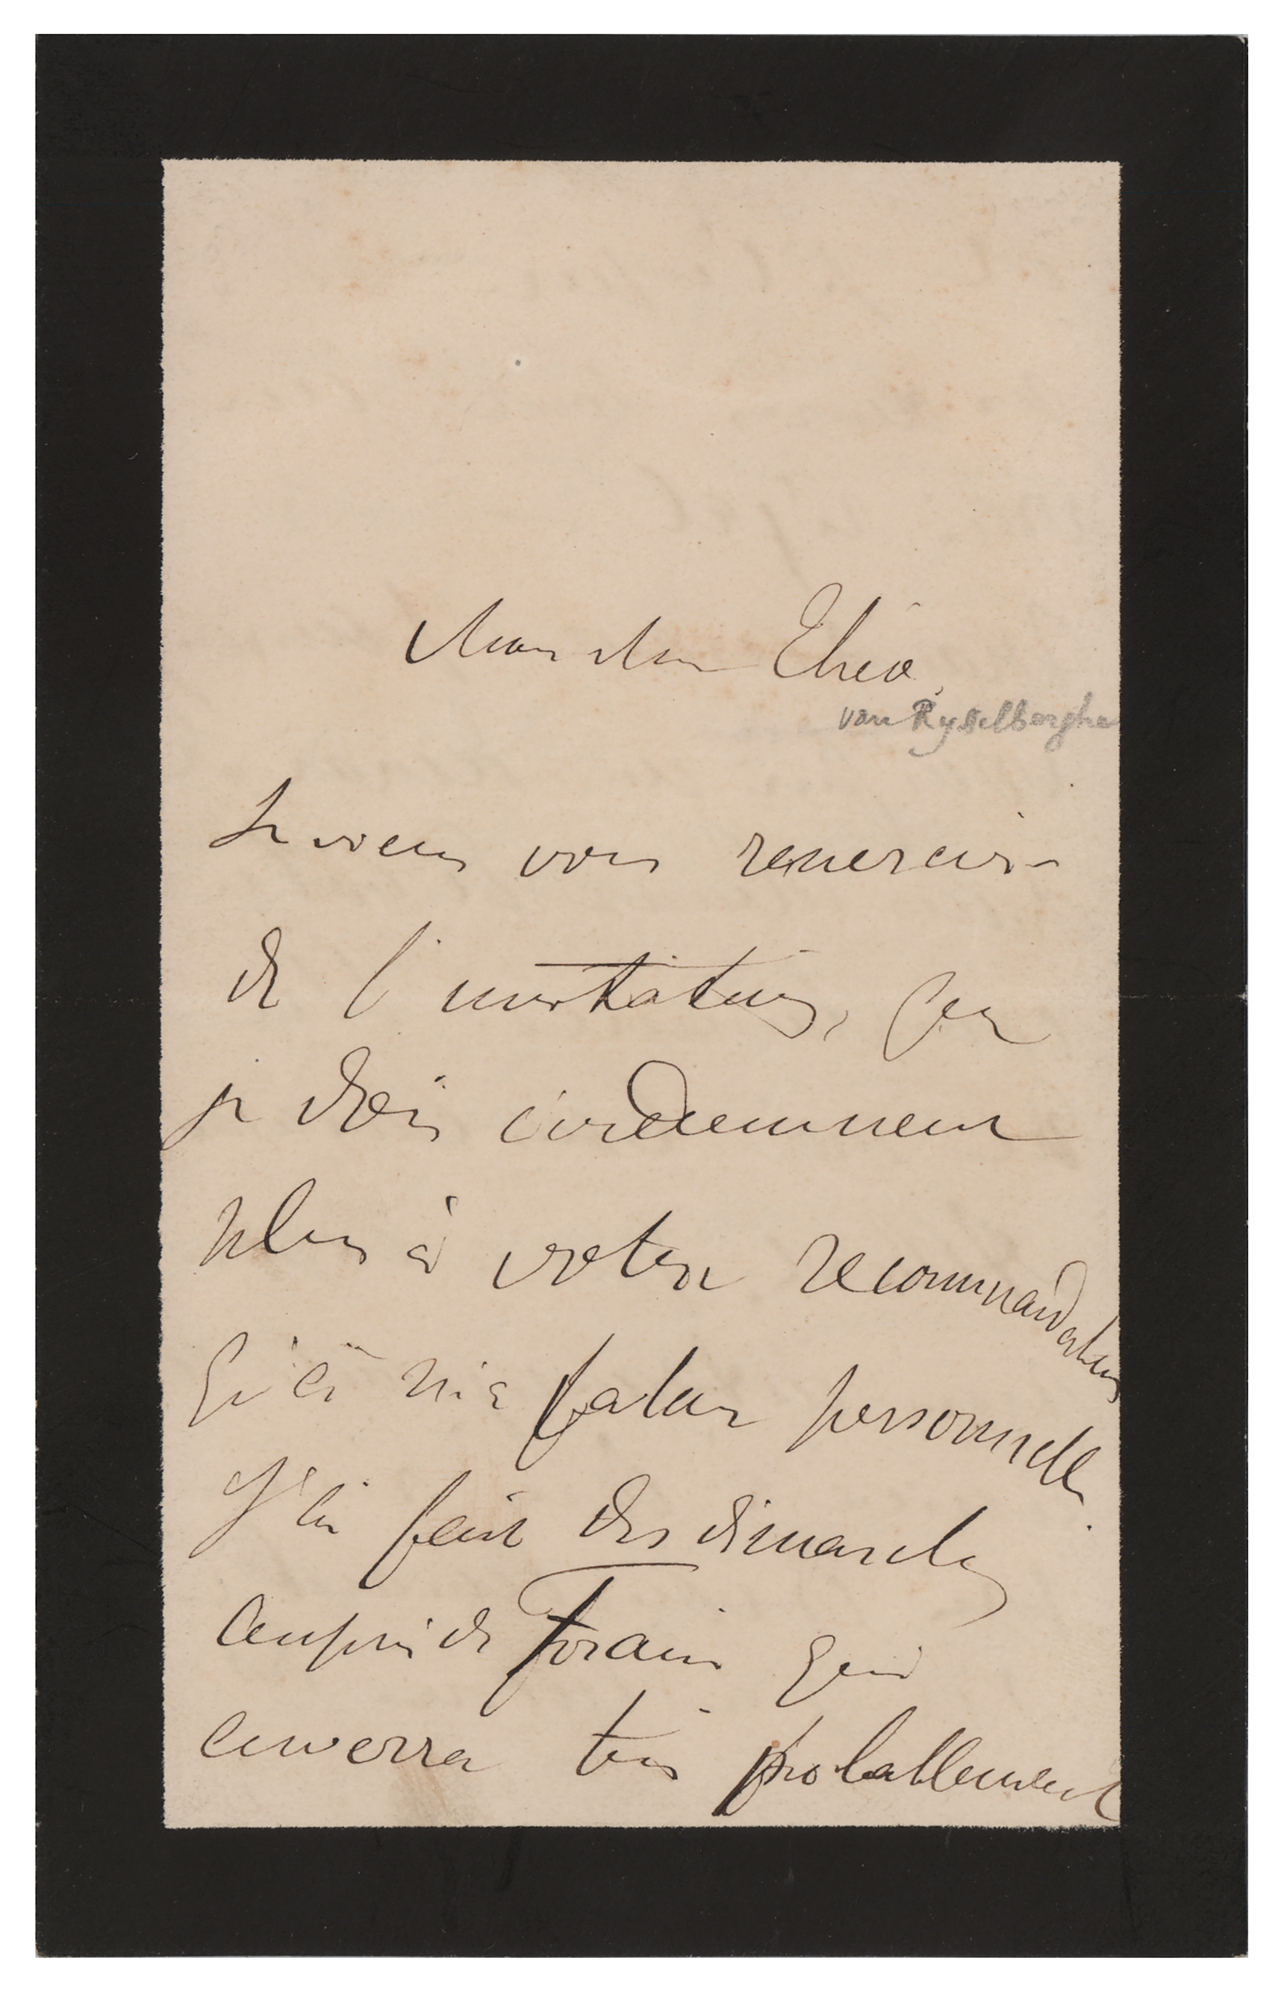 Mon cher Théo,
van Rysselberghe
Je viens vous remercier
de l'invitation, que
je dois evidemment
plus à votre recommandation
qu'à ma valeur personnelle
J'ai fait des dimarches
auprès de Forain qui
enverra très probablement